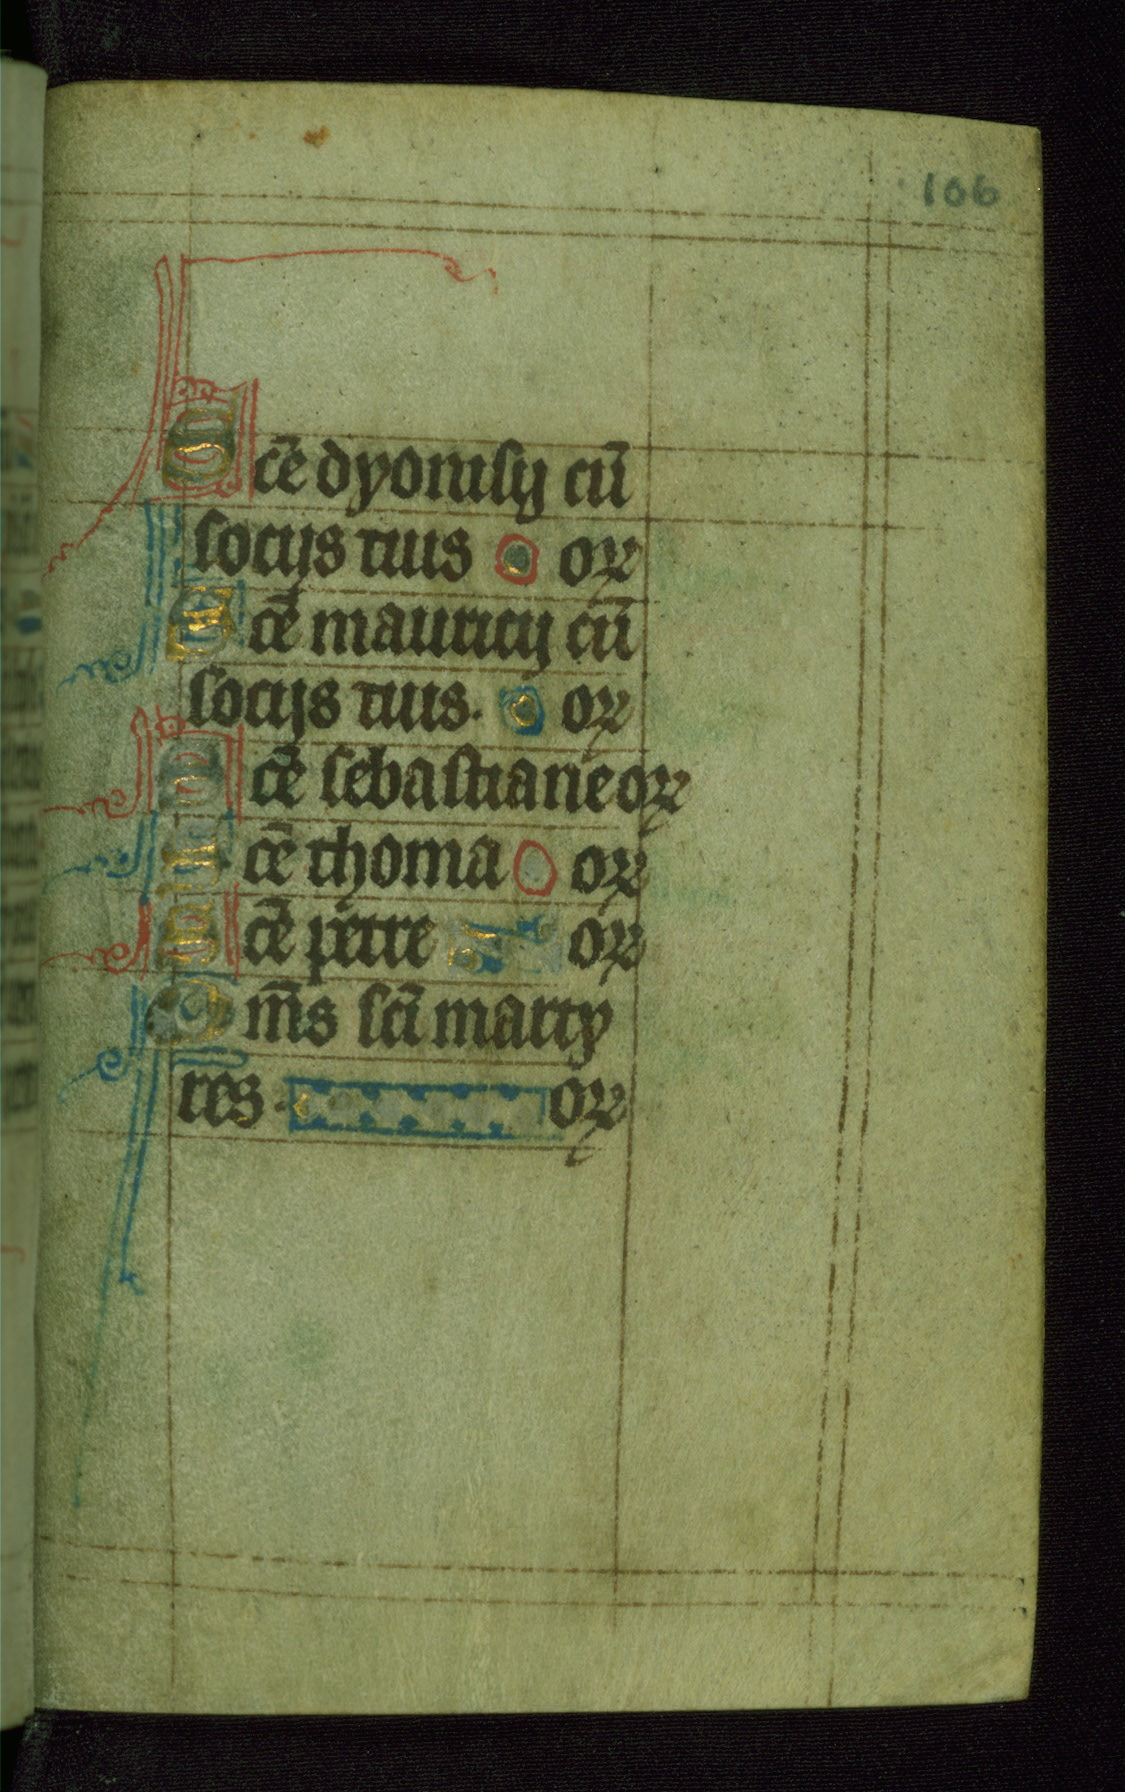 106
Sce᷑ dyonisij cu̅
socijs tuis or
Sce̅ mauricij cu̅
socijs tuis. or
Sce̅ sebastiane or
Sce̅ thoma or
Sce̅ petre or
Om̅s sc̅i marty
res. or